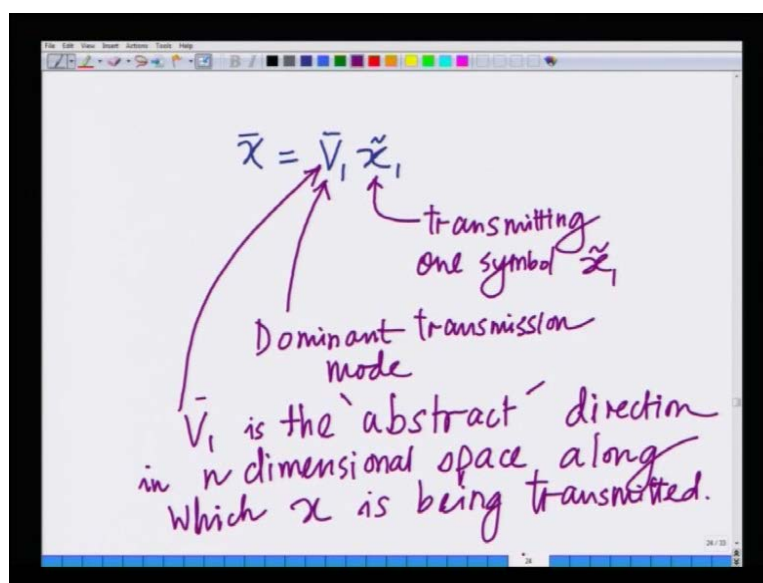 File Edit View Insert Actions Tools Help
B I
x̄ = V̄₁ x̃₁
transmitting
one symbol x̃₁
Dominant transmission
mode
V̄₁ is the `abstract´ direction
in n dimensional space along
which x is being transmitted.
24 / 33
24